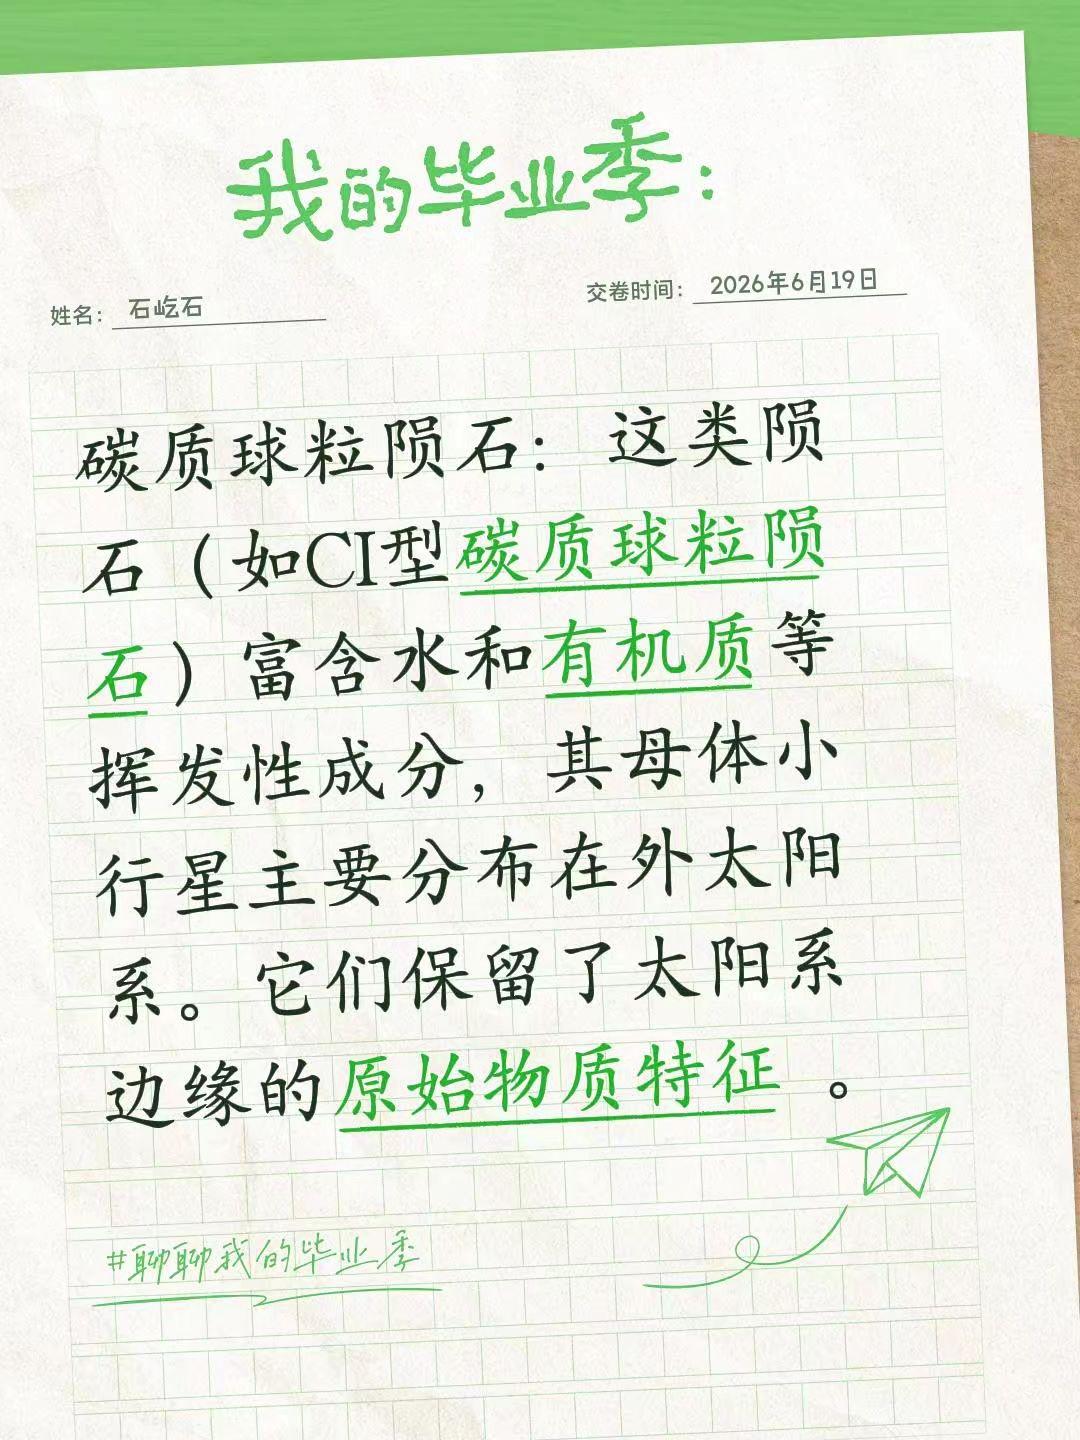 我的毕业季：
姓名：石屹石
交卷时间：2026年6月19日
碳质球粒陨石：这类陨
石（如CI型碳质球粒陨
石）富含水和有机质等
挥发性成分，其母体小
行星主要分布在外太阳
系。它们保留了太阳系
边缘的原始物质特征。
#聊聊我的毕业季